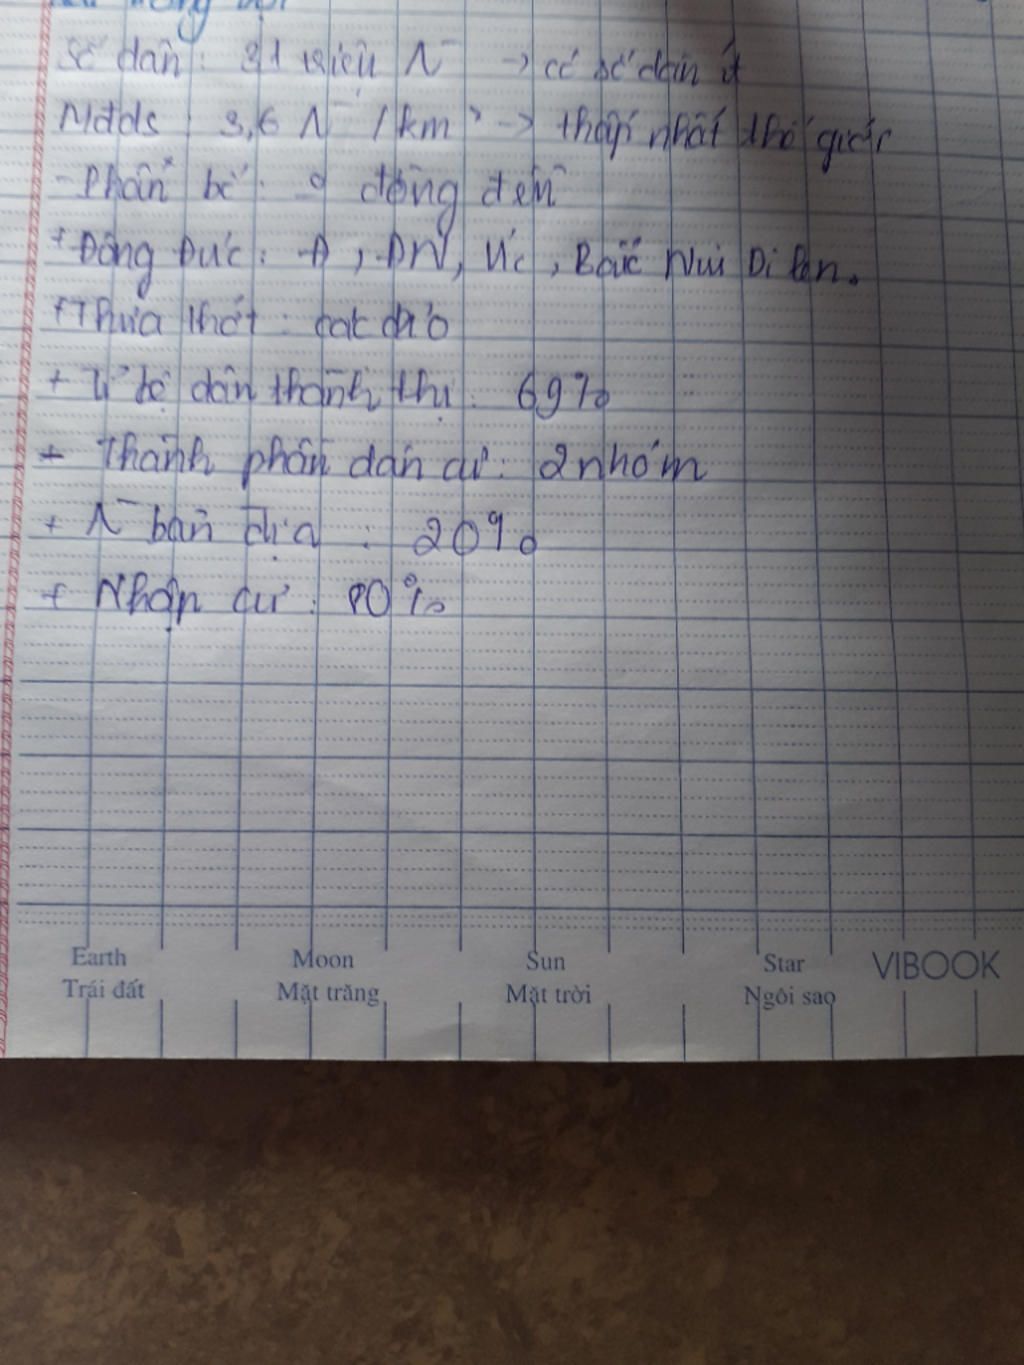 Số dân: 31 triệu N~ -> có số dân ít
Mđds: 3,6 N~/km² -> thấp nhất thế giới
- Phân bố: 0 đồng đều
+ Đông Đức: Đ, ĐN, Úc, Bắc Niu Di Len.
+ Thưa thớt: các đảo
+ Tỉ lệ dân thành thị: 69%
+ Thành phần dân cư: 2 nhóm
+ N~ bản địa: 20%
+ Nhập cư: 80%
Earth Moon Sun Star VIBOOK
Trái đất Mặt trăng Mặt trời Ngôi sao